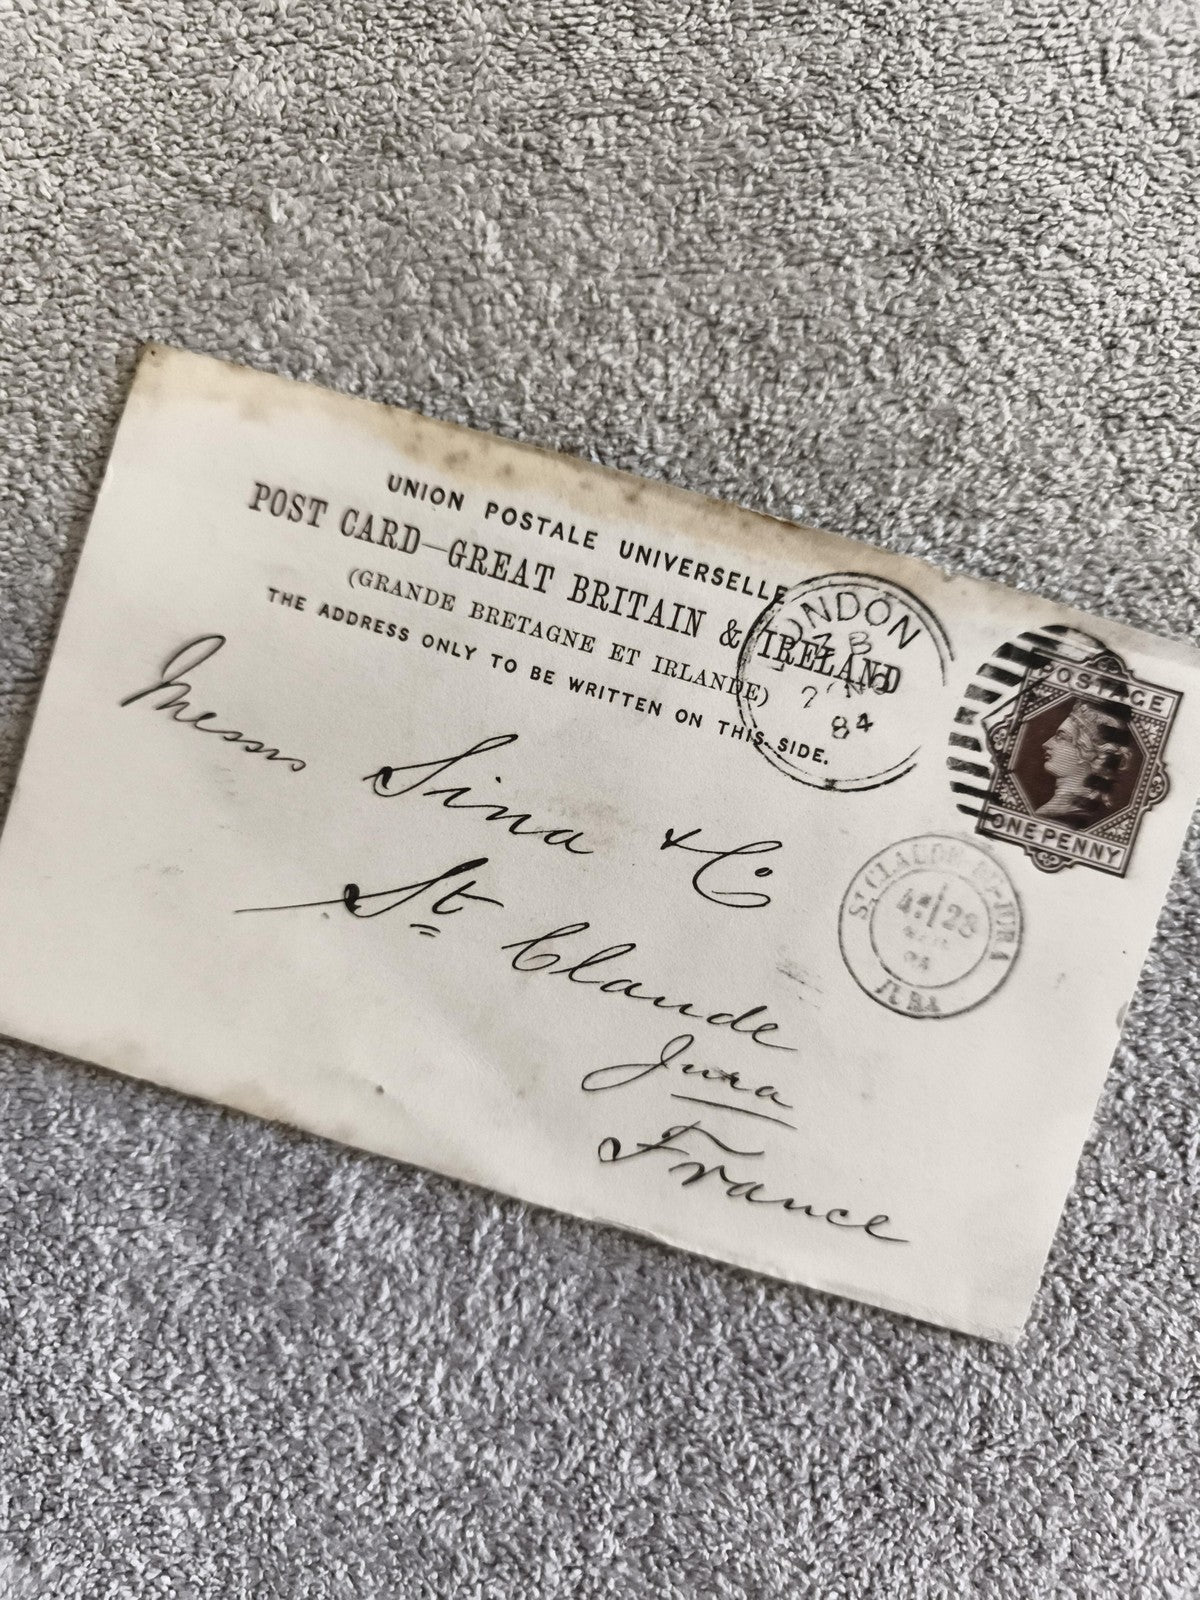 UNION POSTALE UNIVERSELLE
POST CARD—GREAT BRITAIN & IRELAND
(GRANDE BRETAGNE ET IRLANDE)
THE ADDRESS ONLY TO BE WRITTEN ON THIS SIDE.
LONDON
84
POSTAGE
ONE PENNY
Messrs Sina & Co
St Claude
Jura
France
ST CLAUDE-DU-JURA
28
JURA